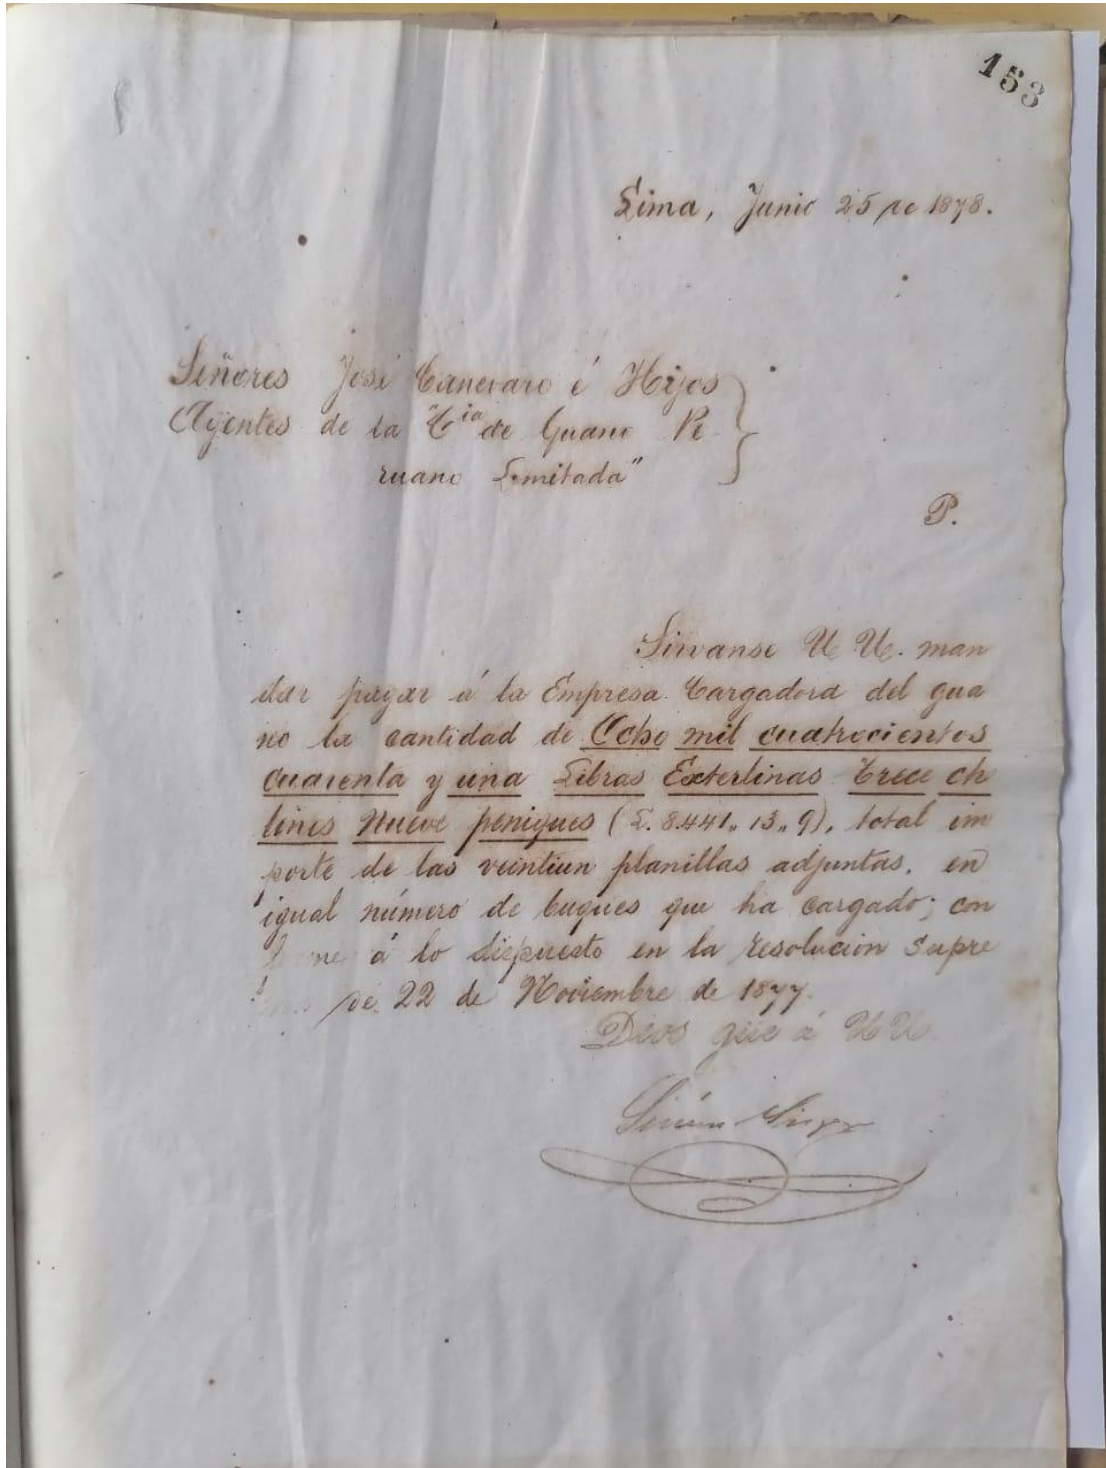 153
Lima, Junio 25 de 1878.
Señores José Canevaro é Hijos
Agentes de la "Cia de Guano Pe
ruano Limitada"
P.
Sirvanse UU. man
dar pagar á la Empresa Cargadora del gua
no la cantidad de Ocho mil cuatrocientos
cuarenta y una Libras Exterlinas Trece ch
lines Nueve peniques (£. 8.441,, 13,, 9), total im
porte de las veintiun planillas adjuntas, en
igual número de buques que ha cargado; con
á lo dispuesto en la resolucion Supre
de 22 de Noviembre de 1877.
Dios gûe á UU.